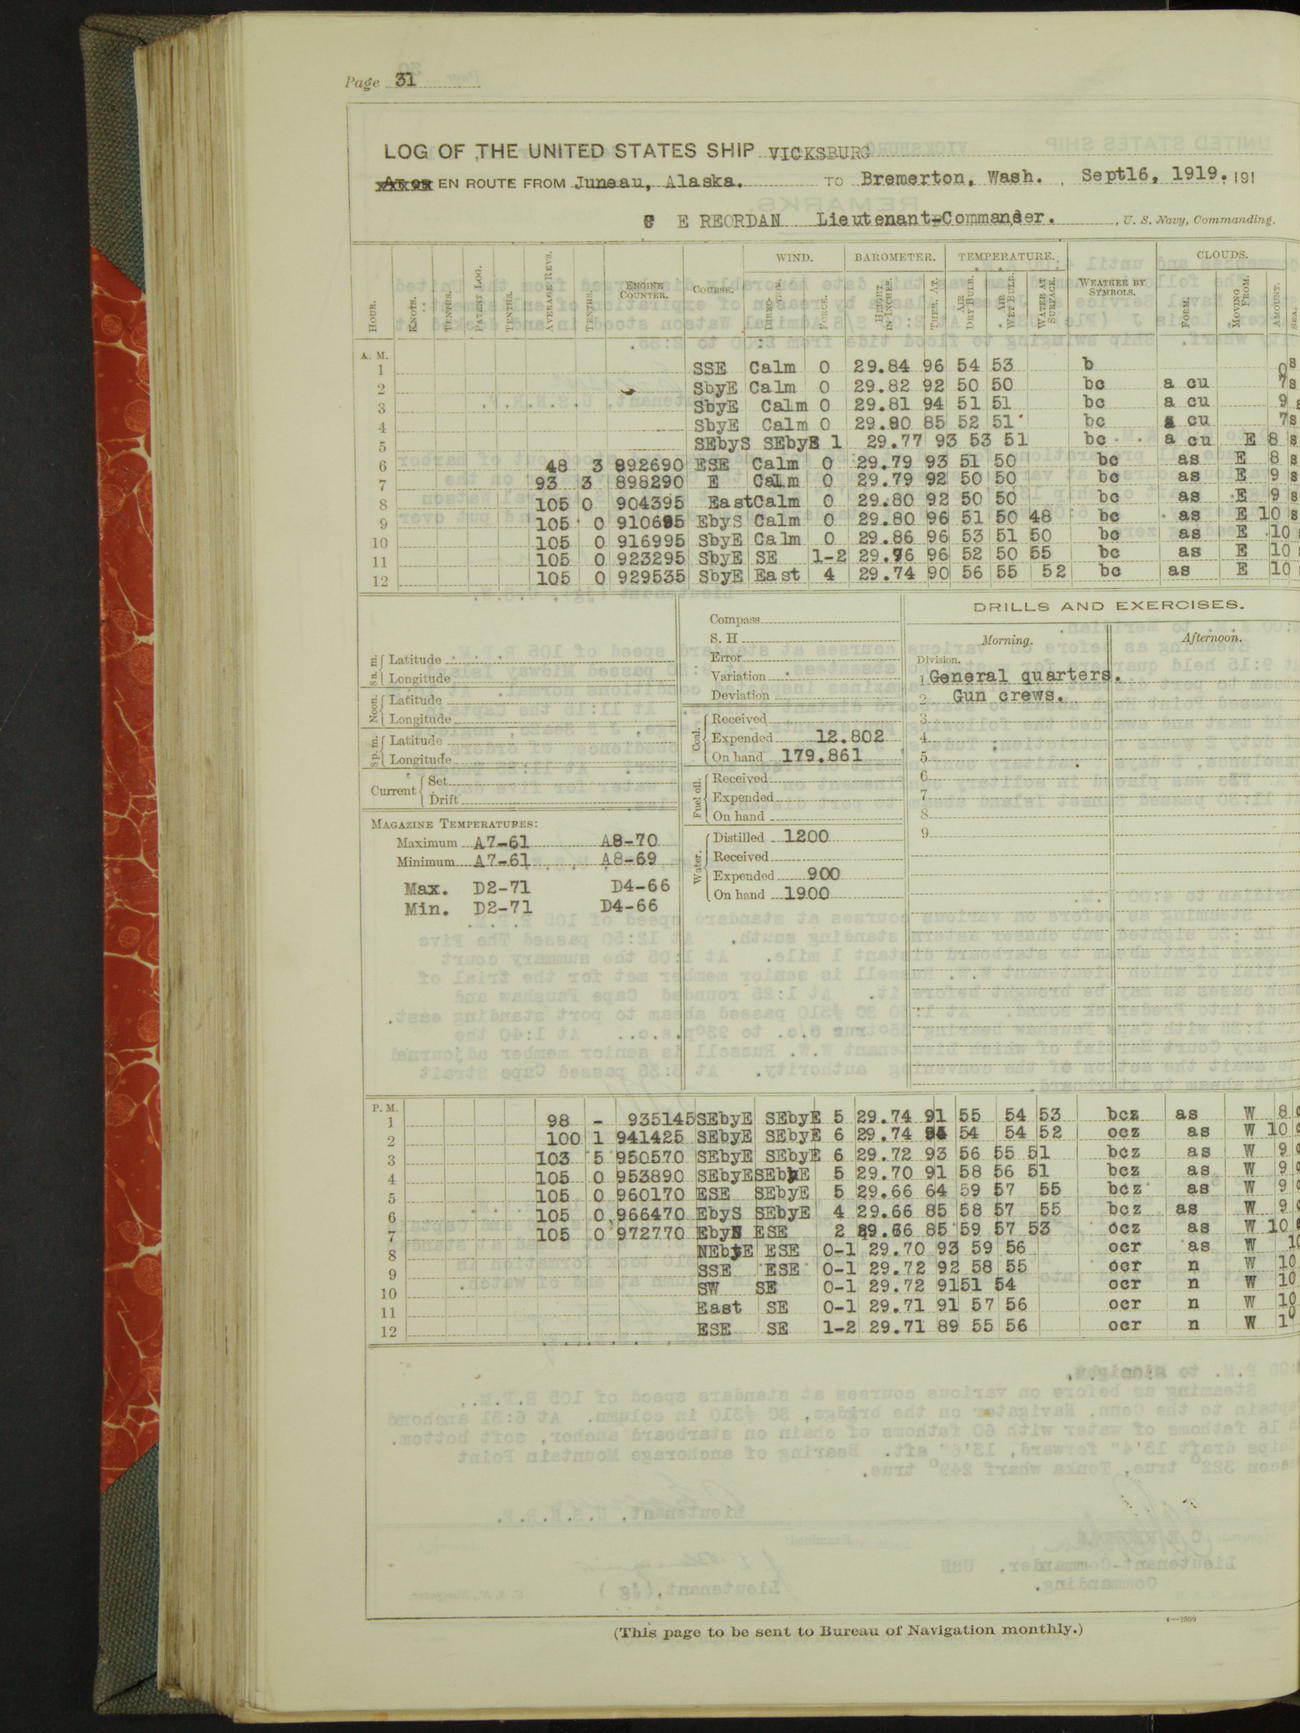 Page 31
LOG OF THE UNITED STATES SHIP VICKSBURG
EN ROUTE FROM Juneau, Alaska. TO Bremerton, Wash. , Sept16, 1919. 191
C E REORDAN Lieutenant-Commander. , U. S. Navy, Commanding.
WIND. BAROMETER. TEMPERATURE. CLOUDS.
HOUR. KNOTS. TENTHS. PATENT LOG. TENTHS. AVERAGE REVS. TENTHS. ENGINE COUNTER. COURSE. DIREC- TION. FORCE. HEIGHT IN INCHES. THER. AT. AIR DRY BULB. AIR WET BULB. WATER AT SURFACE. WEATHER BY SYMBOLS. FORM. MOVING FROM. AMOUNT. SEA.
A. M.
1 SSE Calm 0 29.84 96 54 53 b 0 s
2 SbyE Calm 0 29.82 92 50 50 bc a cu 7 s
3 SbyE Calm 0 29.81 94 51 51 bc a cu 9 s
4 SbyE Calm 0 29.80 85 52 51 bc a cu 7 s
5 SEbyS SEbyE 1 29.77 93 53 51 bc a cu E 8 s
6 48 3 892690 ESE Calm 0 29.79 93 51 50 bc as E 8 s
7 93 3 898290 E Calm 0 29.79 92 50 50 bc as E 9 s
8 105 0 904395 East Calm 0 29.80 92 50 50 bc as E 9 s
9 105 0 910695 EbyS Calm 0 29.80 96 51 50 48 bc as E 10 s
10 105 0 916995 SbyE Calm 0 29.86 96 53 51 50 bc as E 10 s
11 105 0 923295 SbyE SE 1-2 29.76 96 52 50 55 bc as E 10 s
12 105 0 929535 SbyE East 4 29.74 90 56 55 52 bc as E 10 s
DRILLS AND EXERCISES.
Morning. Afternoon.
Division.
1 General quarters.
2 Gun crews.
3
4
5
6
7
8
9
8 a. m. Latitude
Longitude
Noon. Latitude
Longitude
8 p. m. Latitude
Longitude
Current Set
Drift
Compass
S. H
Error
Variation
Deviation
Coal. Received
Expended 12.802
On hand 179.861
Fuel oil. Received
Expended
On hand
Water. Distilled 1200
Received
Expended 900
On hand 1900
MAGAZINE TEMPERATURES:
Maximum A7-61 A8-70
Minimum A7-61 A8-69
Max. D2-71 D4-66
Min. D2-71 D4-66
P. M.
1 98 - 935145 SEbyE SEbyE 5 29.74 91 55 54 53 bcz as W 8
2 100 1 941425 SEbyE SEbyE 6 29.74 54 54 52 ocz as W 10
3 103 5 950570 SEbyE SEbyE 6 29.72 93 56 55 51 bcz as W 9
4 105 0 953890 SEbyE SEbyE 5 29.70 91 58 56 51 bcz as W 9
5 105 0 960170 ESE SEbyE 5 29.66 64 59 57 55 bcz as W 9
6 105 0 966470 EbyS SEbyE 4 29.66 85 58 57 55 bcz as W 9
7 105 0 972770 EbyN ESE 2 29.66 85 59 57 53 ocz as W 10
8 NEbyE ESE 0-1 29.70 93 59 56 ocr as W 10
9 SSE ESE 0-1 29.72 92 58 55 ocr n W 10
10 SW SE 0-1 29.72 91 51 54 ocr n W 10
11 East SE 0-1 29.71 91 57 56 ocr n W 10
12 ESE SE 1-2 29.71 89 55 56 ocr n W 10
4—2599
(This page to be sent to Bureau of Navigation monthly.)